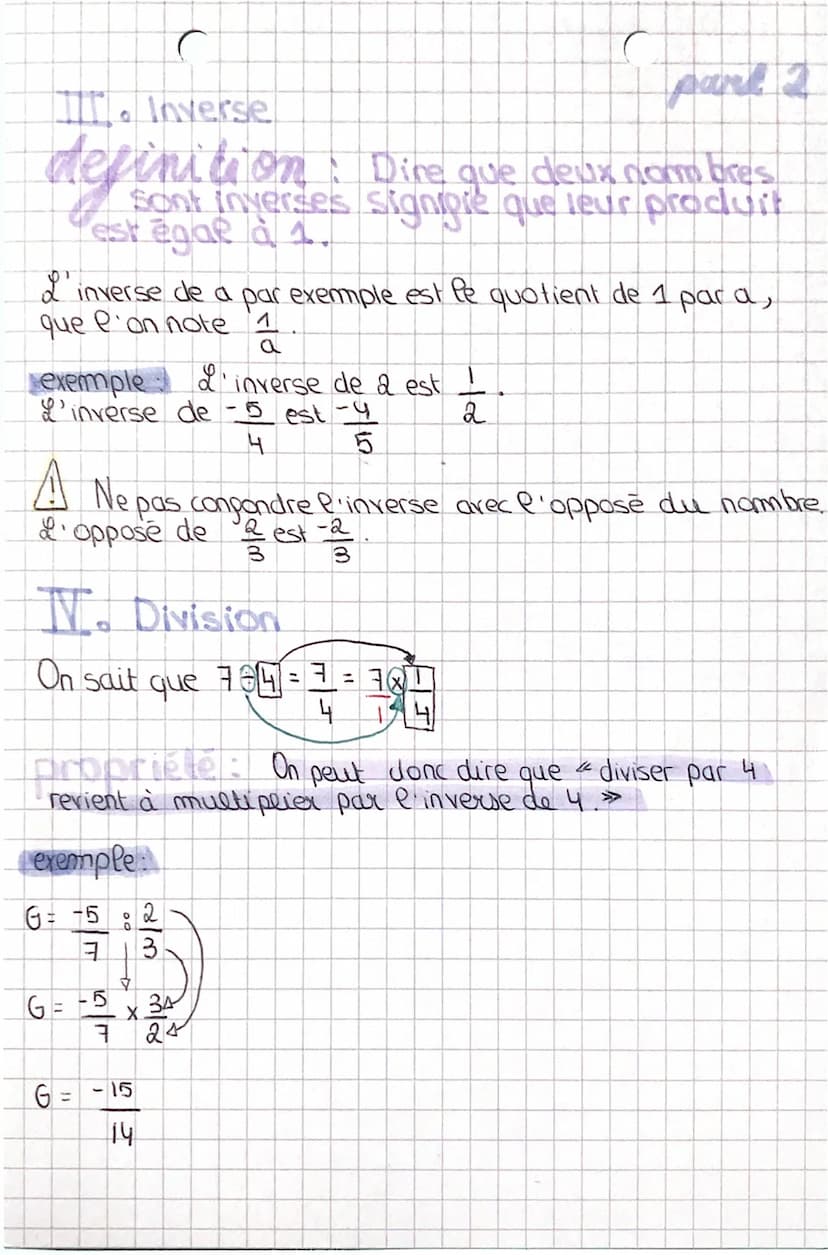 part 2
III. Inverse
définition : Dire que deux nombres
sont inverses signifie que leur produit
est égal à 1.
L'inverse de a par exemple est le quotient de 1 par a,
que l'on note 1/a.
exemple : L'inverse de 2 est 1/2.
L'inverse de -5/4 est -4/5
! Ne pas confondre l'inverse avec l'opposé du nombre.
L'opposé de 2/3 est -2/3.
IV. Division
On sait que 7 ÷ 4 = 7/4 = 7/1 x 1/4
propriété : On peut donc dire que « diviser par 4
revient à multiplier par l'inverse de 4. »
exemple :
G = -5/7 : 2/3
G = -5/7 x 3/2
G = -15/14